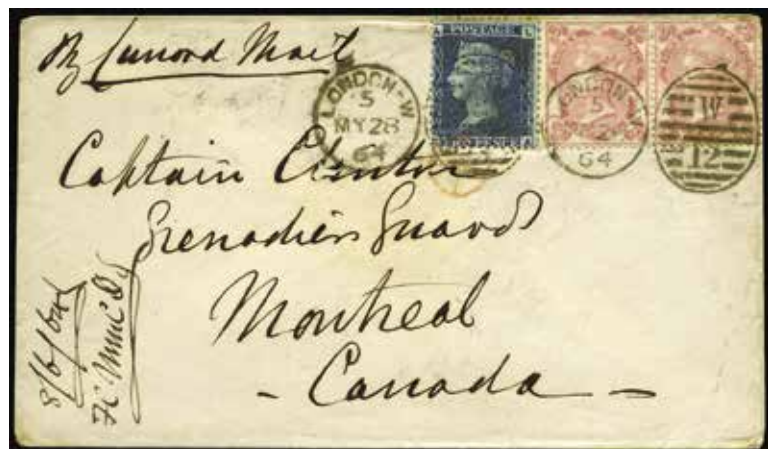 By Cunard Mail
A POSTAGE L
LONDON-W
5
MY 28
64
LONDON-W
5
64
W
12
Captain
Grenadier Guards
Montreal
- Canada -